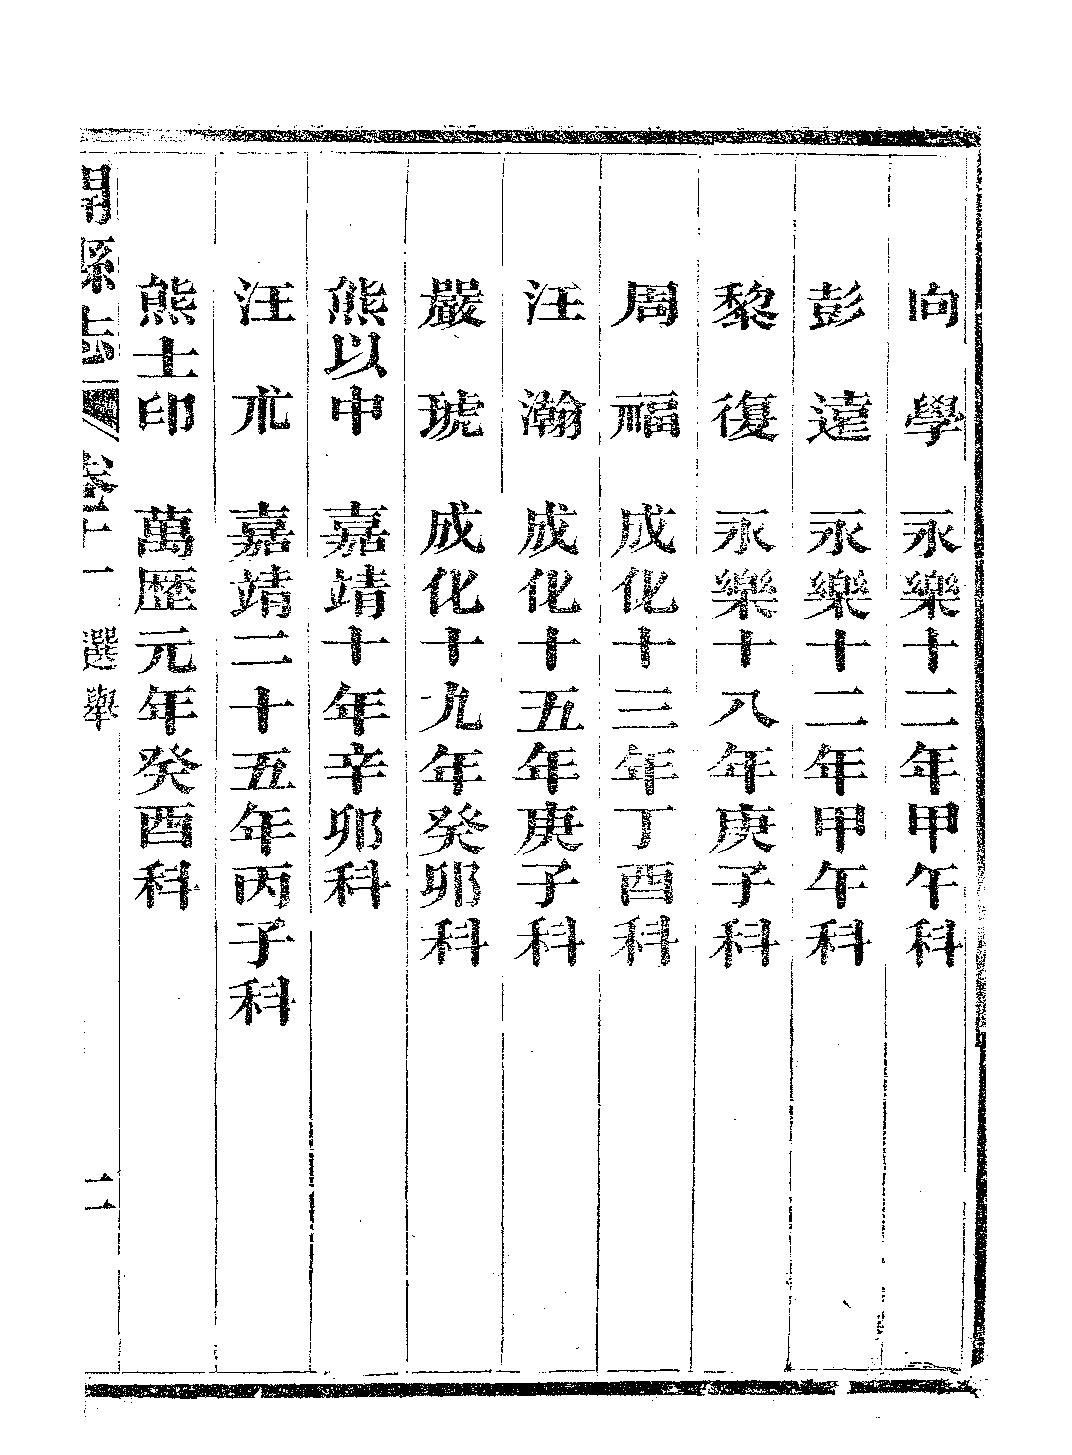 向學 永樂十二年甲午科
彭達 永樂十二年甲午科
黎復 永樂十八年庚子科
周福 成化十三年丁酉科
汪瀚 成化十五年庚子科
嚴琥 成化十九年癸卯科
熊以中 嘉靖十年辛卯科
汪朮 嘉靖二十五年丙子科
熊士印 萬歷元年癸酉科
開縣志 卷十一 選舉 二